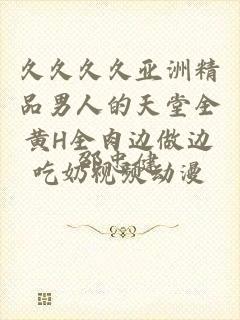 久久久久亚洲精
品男人的天堂全
黄H全肉边做边
吃奶视频动漫
邵忠健